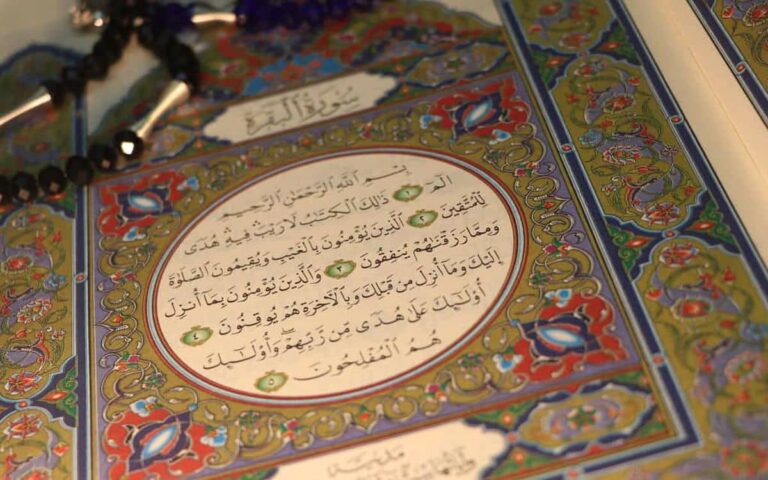 سُورَةُ الْبَقَرَةِ
بِسْمِ ٱللَّهِ ٱلرَّحْمَٰنِ ٱلرَّحِيمِ
الٓمٓ ١ ذَٰلِكَ ٱلْكِتَٰبُ لَا رَيْبَ فِيهِ هُدًى
لِّلْمُتَّقِينَ ٢ ٱلَّذِينَ يُؤْمِنُونَ بِٱلْغَيْبِ وَيُقِيمُونَ ٱلصَّلَوٰةَ
وَمِمَّا رَزَقْنَٰهُمْ يُنفِقُونَ ٣ وَٱلَّذِينَ يُؤْمِنُونَ بِمَآ أُنزِلَ
إِلَيْكَ وَمَآ أُنزِلَ مِن قَبْلِكَ وَبِٱلْءَاخِرَةِ هُمْ يُوقِنُونَ ٤
أُو۟لَٰٓئِكَ عَلَىٰ هُدًى مِّن رَّبِّهِمْ ۖ وَأُو۟لَٰٓئِكَ
هُمُ ٱلْمُفْلِحُونَ ٥
مدنية